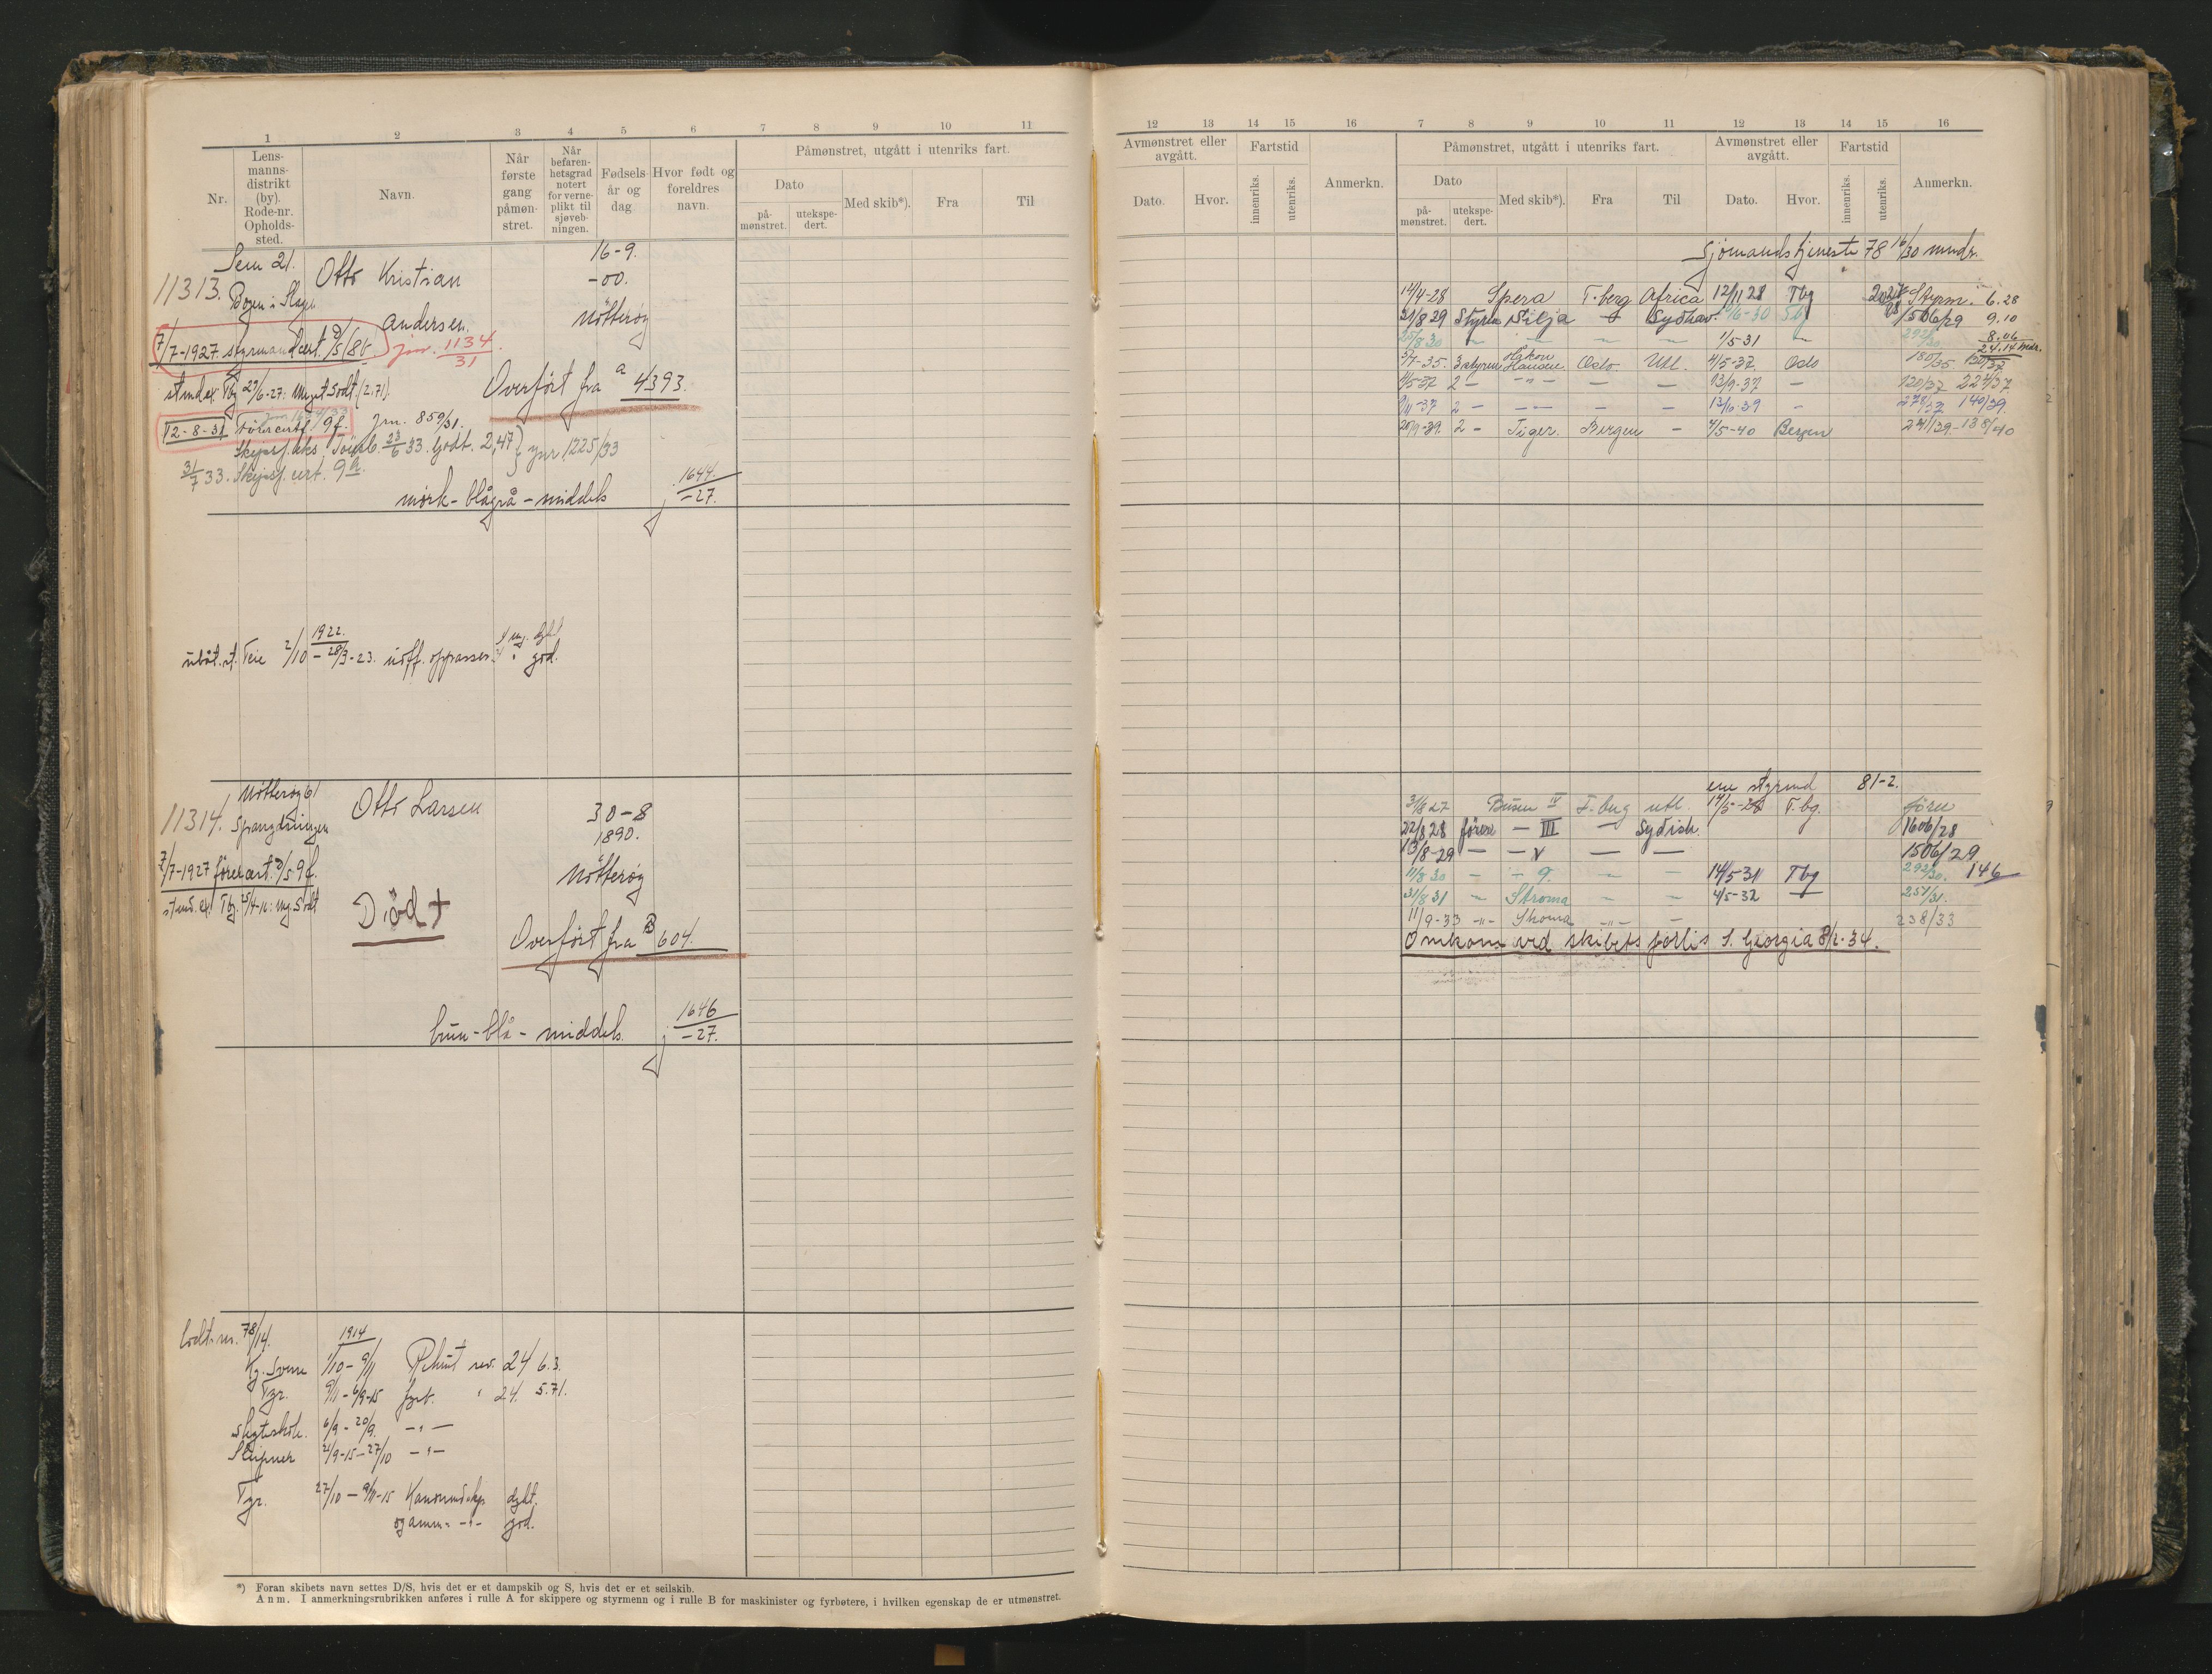 1 2 3 4 5 6 7 8 9 10 11
Nr.
Lens-
manns-
distrikt
(by).
Rode-nr.
Opholds-
sted.
Navn.
Når
første
gang
påmøn-
stret.
Når
befaren-
hetsgrad
notert
for verne-
plikt til
sjøveb-
ningen.
Fødsels-
år og
dag
Hvor født og
foreldres
navn.
Påmønstret, utgått i utenriks fart.
Dato
på-
mønstret.
utekspe-
dert.
Med skib*).
Fra
Til
Sem 21.
11313.
Otto Kristian
Andersen.
16-9.
-00.
Nötteröy
7/7-1927 styrmandcert.
jnr. 1134/31
Tbg 29/6-27: Meget Godt (2.71).
Overført fra a 4393.
12-8-31
9f. Jnr. 859/31.
23/6 33. Godt. 2,47 } jnr 1225/33
31/7 33. Skipsf. cert. 9a.
mørk - blågrå - middels
j 1644/-27.
1922.
Teie 2/10 - 28/3-23. uoff. oppasser.
god.
Nötteröy 61
11314.
Otto Larsen
30-8
1890.
Nötteröy
7/7-1927 förercert. 9f.
Död +
Overført fra B 604.
brun - blå - middels.
j 1646/-27.
78/14.
1914
1/10 - 9/11 Rekrut 24 6.3.
Tgr. 9/11 - 6/9-15 24. 5.71.
6/9 - 20/9. -"-
Sleipner 21/9-15 - 27/10 -"-
Tgr. 27/10 - 9/11-15 dygt.
og amm. -"- god.
*) Foran skibets navn settes D/S, hvis det er et dampskib og S, hvis det er et seilskib.
Anm. I anmerkningsrubrikken anføres i rulle A for skippere og styrmenn og i rulle B for maskinister og fyrbøtere, i hvilken egenskap de er utmønstret.
12 13 14 15 16 7 8 9 10 11 12 13 14 15 16
Avmønstret eller
avgått.
Dato.
Hvor.
Fartstid
innenriks.
utenriks.
Anmerkn.
Påmønstret, utgått i utenriks fart.
Dato
på-
mønstret.
utekspe-
dert.
Med skib*).
Fra
Til
Avmønstret eller
avgått.
Dato.
Hvor.
Fartstid
innenriks.
utenriks.
Anmerkn.
Sjömandstjeneste 78 16/30 mndr.
14/4-28 Spera T-berg Africa 12/11 28 Tbg Styrm. 6.28
31/8 29 Styrm Silja Sydhav. 1506/29 9.10
25/8 30 1/5-31 8.06
24.14 mdr.
3/7-35. 3 styrm Håkon Hansen Oslo Utl. 4/5-37. Oslo 180/35. 130/37
4/5-37 2 - -"- - - 13/9-37 - 130/37 224/37
9/11-37 2 - - - - - 13/10-39 - 278/37 140/39.
20/9-39. 2 - Tiger. Bergen - 4/5-40 Bergen 241/39 - 138/40
81-2.
31/8 27 Busen IV T-berg utl. T.bg. förer
22/8 28 förer - III - Sydish. 1606/28
13/8-29 - - V - - 1506/29
11/8 30 - - 9. - - 14/5 31 Tbg 292/30. 146
31/8 31 - Stroma - - 4/5-32 - 251/31.
11/9-33 -"- Skoma -"- - 238/33
Omkom ved skibets forlis S. Georgia 8/2-34.